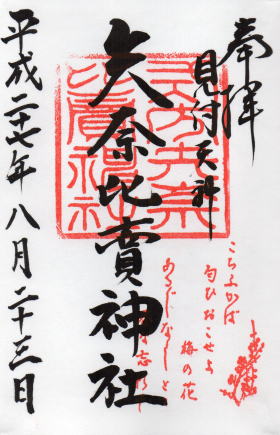 奉拝
見付天神
矢奈比賣神社
平成二十七年八月二十三日
こちふかば
匂ひおこせよ
梅の花
あるじなしと
忘